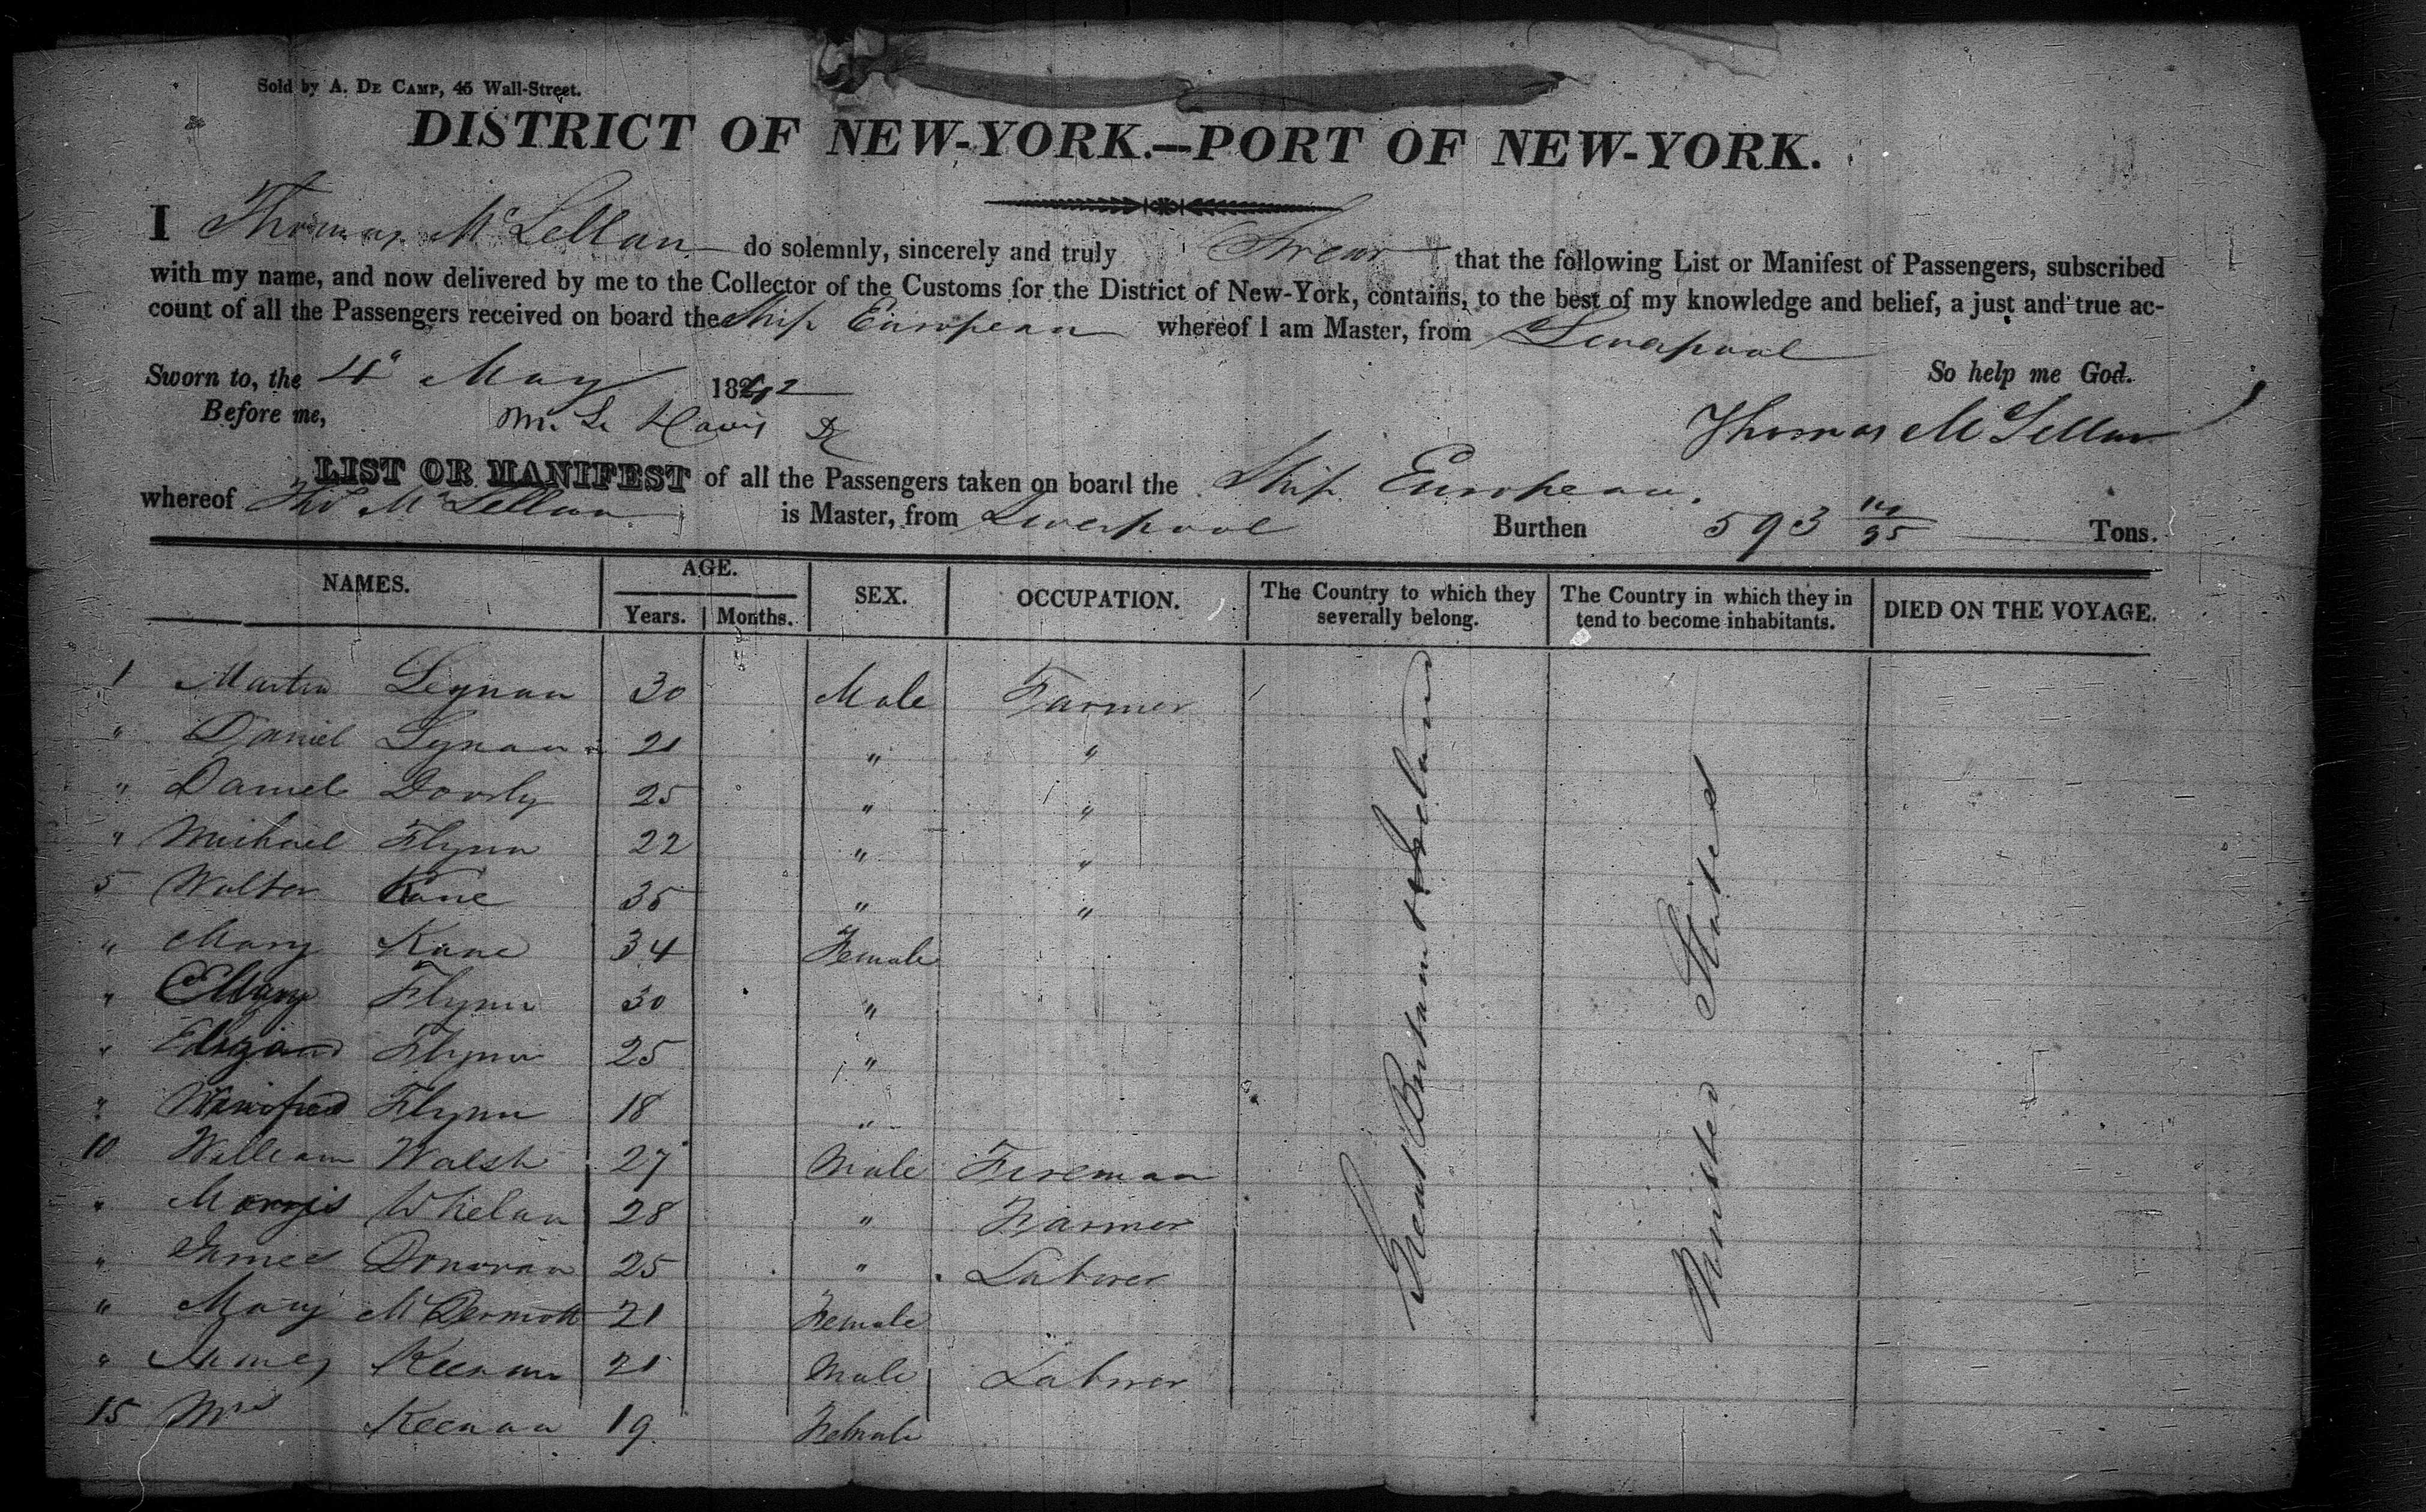 Sold by A. De Camp, 45 Wall-Street.
DISTRICT OF NEW-YORK.—PORT OF NEW-YORK.
I Thomas McLellan do solemnly, sincerely and truly Swear that the following List or Manifest of Passengers, subscribed
with my name, and now delivered by me to the Collector of the Customs for the District of New-York, contains, to the best of my knowledge and belief, a just and true ac-
count of all the Passengers received on board the Ship European whereof I am Master, from Liverpool
So help me God.
Sworn to, the 4" May 1842
Before me, M. L. Davis
Thomas McLellan
LIST OR MANIFEST of all the Passengers taken on board the Ship European.
whereof Thos McLellan is Master, from Liverpool Burthen 593 /95 Tons.
NAMES. AGE. SEX. OCCUPATION. The Country to which they severally belong. The Country in which they in tend to become inhabitants. DIED ON THE VOYAGE.
Years. Months.
1 Martin Leynan 30 Male Farmer
" Daniel Lynan 21 " "
" Daniel Doorly 25 " "
" Michael Flynn 22 " "
5 Walter Kane 35 " "
" Mary Kane 34 Female
" Flynn 30 "
" Eliza Flynn 25 "
" Winifred Flynn 18 "
10 William Walsh 27 Male Fireman
" Morris Whelan 28 " Farmer
" James Donovan 25 " Laborer
" Mary McDermott 21 Female
" James Keenan 21 Male Laborer
15 Mrs Keenan 19 Female
Great Britain & Ireland
United States